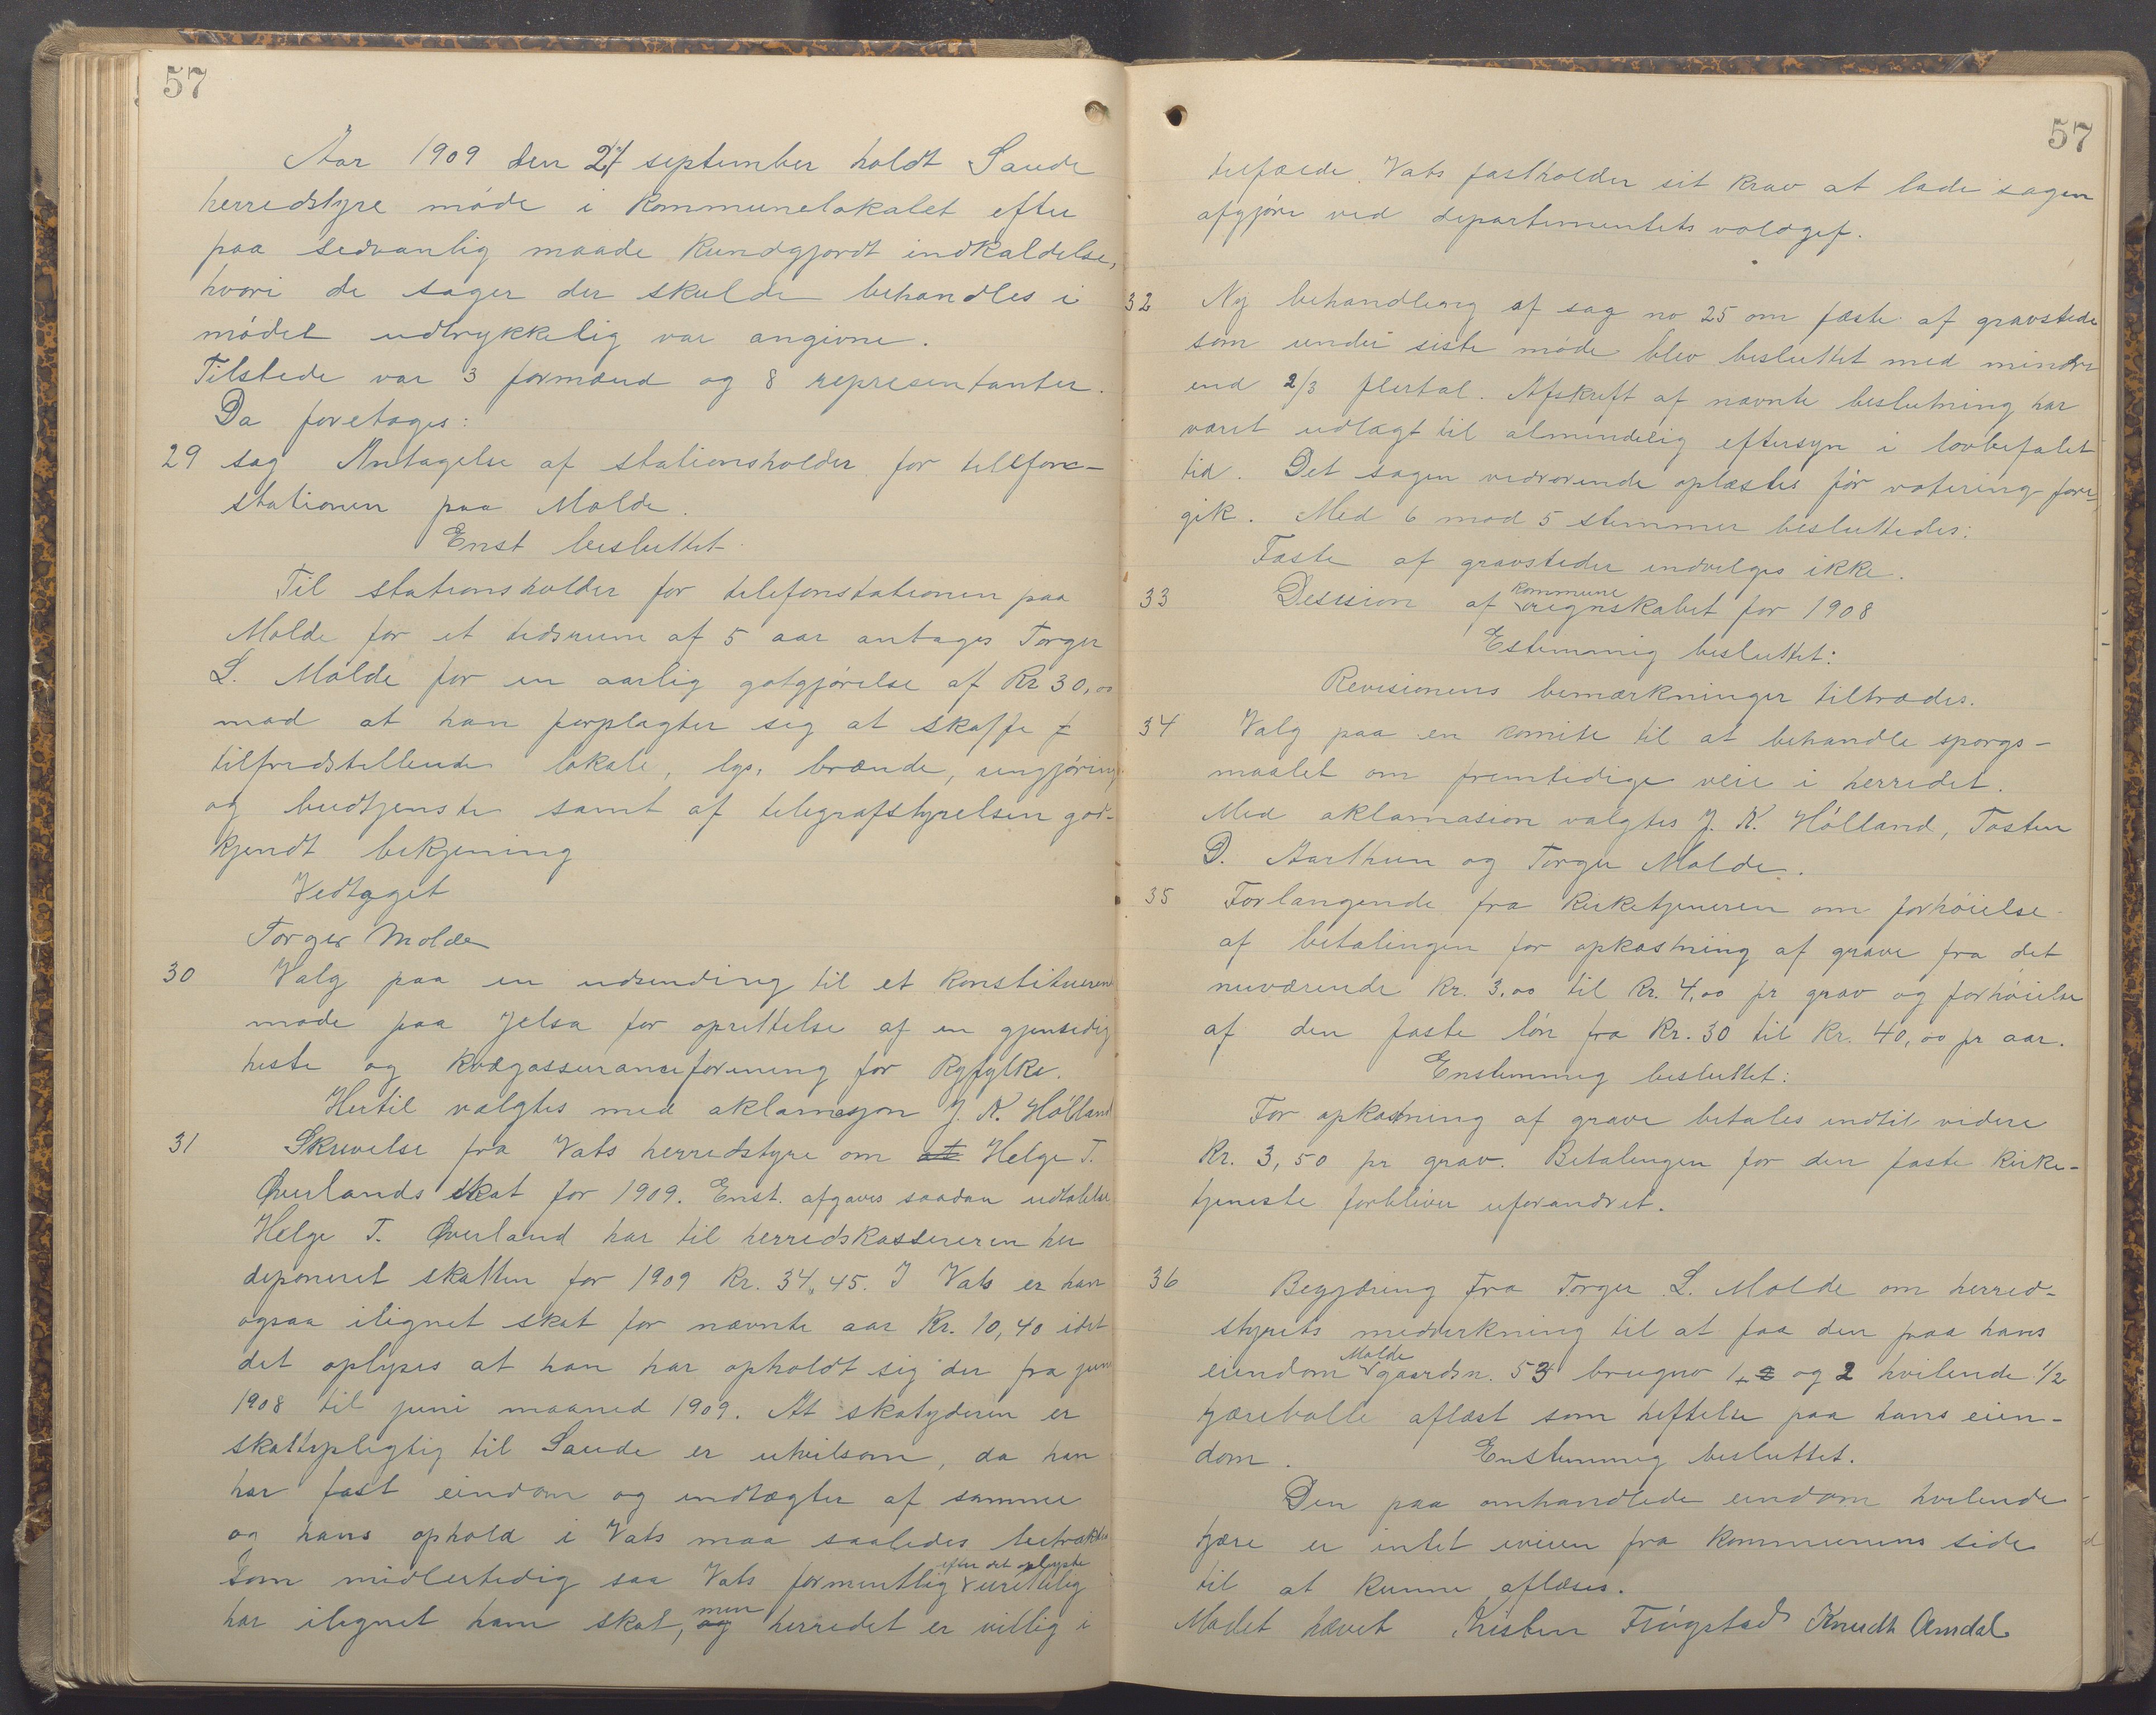 57
Aar 1909 den 24 september holdt Saude
herredstyre møde i kommunelokalet efter
paa sedvanlig maade kundgjordt indkaldelse,
hvori de sager der skulde behandles i
mødet udtrykkelig var angivne.
Tilstede var 3 formænd og 8 representanter.
Da foretages:
29 sag Antagelse af stationsholder for tellefon-
stationen paa Molde.
Enst besluttet
Til stationsholder for telefonstationen paa
Molde for et tidsrum af 5 aar antages Torger
L. Molde for en aarlig gotgjørelse af Kr 30,00
mod at han forplagter seg at skaffe
tilfredstillende lokale, lys, brænde, rengjøring
og budtjenste samt af telegrafstyrelsen god-
kjendt betjening
Vedtaget
Torger Molde
30 Valg paa en udsending til et konstituerend
møde paa Jelsa for oprettelse af en gjensedig
heste og kvægassuranseforening for Ryfylke.
Hertil valgtes med aklamasjon J. K. Hølland
31 Skrivelse fra Vats herredstyre om at Helge T.
Øverlands skat for 1909. Enst. afgaves saadan udtalelse
Helge T. Øverland har til herredskassereren her
deponeret skatten for 1909 Kr. 34,45. I Vats er han
ogsaa ilignet skat for nævnte aar Kr. 10,40 idet
det oplyses at han har opholdt sig der fra juni
1908 til juni maaned 1909. At skatyderen er
skattepligtig til Saude er utvilsom, da han
har fast eindom og indtægter af samme
og hans ophold i Vats maa saaledes betraktes
som midlertedig saa Vats formentlig efter det oplyste urettelig
har ilignet ham skat, og men herredet er villig i
57
telfælde. Vats fastholder sit krav at lade sagen
afgjøre ved departementets voldgif.
32 Ny behandling af sag no 25 om fæste af gravstede
som under siste møde blev besluttet med mindre
end 2/3 flertal. Afskrift af nævnte beslutning har
været udlagt til almindelig eftersyn i lovbefalet
tid. Det sagen vedrørende oplæstes før votering fore-
gik. Med 6 mod 5 stemmer besluttedes:
Fæste af gravsteder indvilges ikke.
33 Desision af kommune regnskabet for 1908
Estemmig besluttet:
Revisionens bemærkninger tiltrædes.
34 Valg paa en komite til at behandle spørgs-
maalet om fremtidige veie i herredet.
Med aklamasion valgtes J. K. Hølland, Tosten
D. Aarthun og Torger Molde.
35 Forlangende fra kirketjeneren om forhøielse
af betalingen for opkastning af grave fra det
nuværende Kr. 3,00 til Kr. 4,00 pr grav og forhøielse
af den faste løn fra Kr. 30 til Kr. 40,00 pr aar.
Enstemmig besluttet:
For opkastning af grave betales indtil videre
Kr. 3,50 pr grav. Betalingen for den faste kirke-
tjeneste forbliver uforandret.
36 Begjæring fra Torger L. Molde om herred-
styrets medvirkning til at faa den paa hans
eiendom Molde gaardsn. 53 brugno 1 og 2 hvilende 1/2
tjærebolle aflæst som heftelse paa hans eien-
dom. Enstemmig besluttet.
Den paa omhandlede eindom hvilende
tjære er intet iveien fra kommunens side
til at kunne aflæses.
Mødet hævet Kristen Frøgstad Knudt Amdal